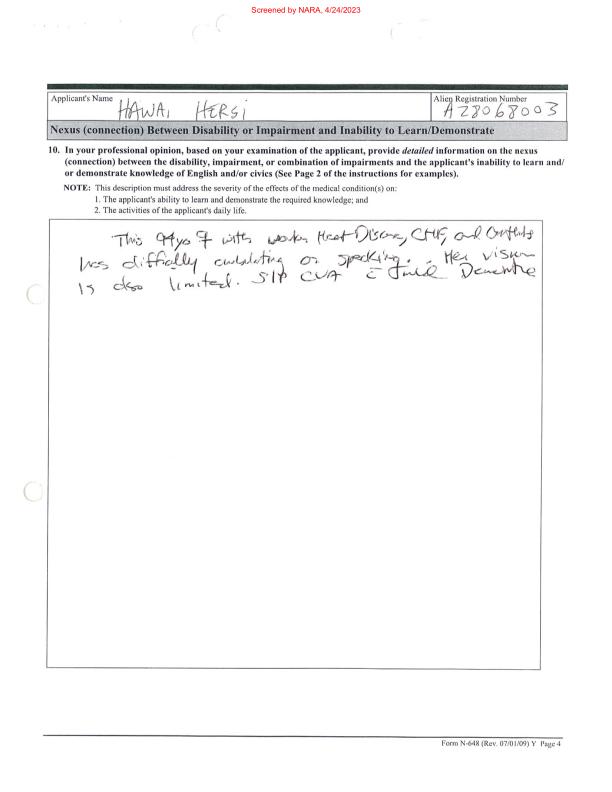 Screened by NARA, 4/24/2023
Applicant's Name HAWAI HERSI
Alien Registration Number A28068003
Nexus (connection) Between Disability or Impairment and Inability to Learn/Demonstrate
10. In your professional opinion, based on your examination of the applicant, provide detailed information on the nexus
(connection) between the disability, impairment, or combination of impairments and the applicant's inability to learn and/
or demonstrate knowledge of English and/or civics (See Page 2 of the instructions for examples).
NOTE: This description must address the severity of the effects of the medical condition(s) on:
1. The applicant's ability to learn and demonstrate the required knowledge; and
2. The activities of the applicant's daily life.
This 94yo F with Heart Disease, CHF, and
has difficulty ambulating or speaking. Her vision
is also limited. S/P CVA c̄ Dementia
Form N-648 (Rev. 07/01/09) Y Page 4